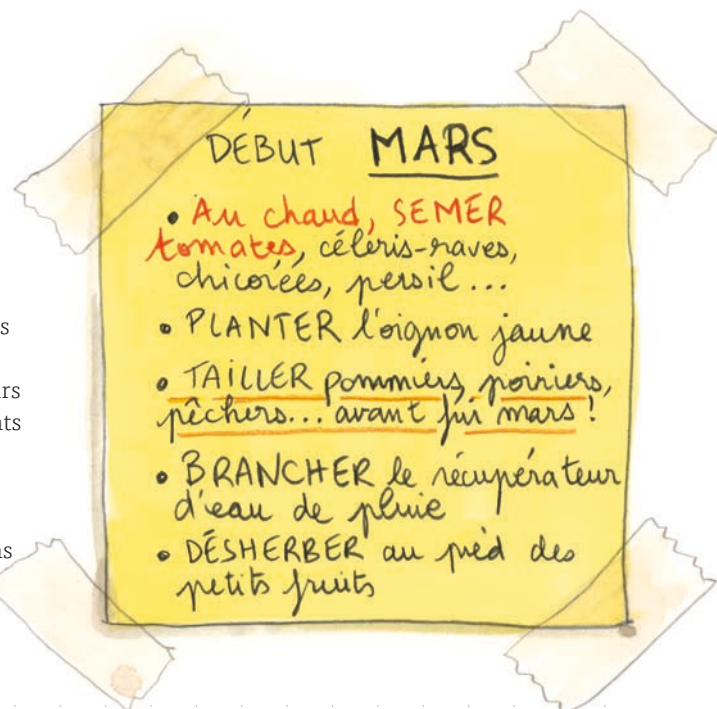 DÉBUT MARS
• Au chaud, SEMER
tomates, céleris-raves,
chicorées, persil...
• PLANTER l'oignon jaune
• TAILLER pommiers, poiriers,
pêchers... avant fin mars !
• BRANCHER le récupérateur
d'eau de pluie
• DÉSHERBER au pied des
petits fruits